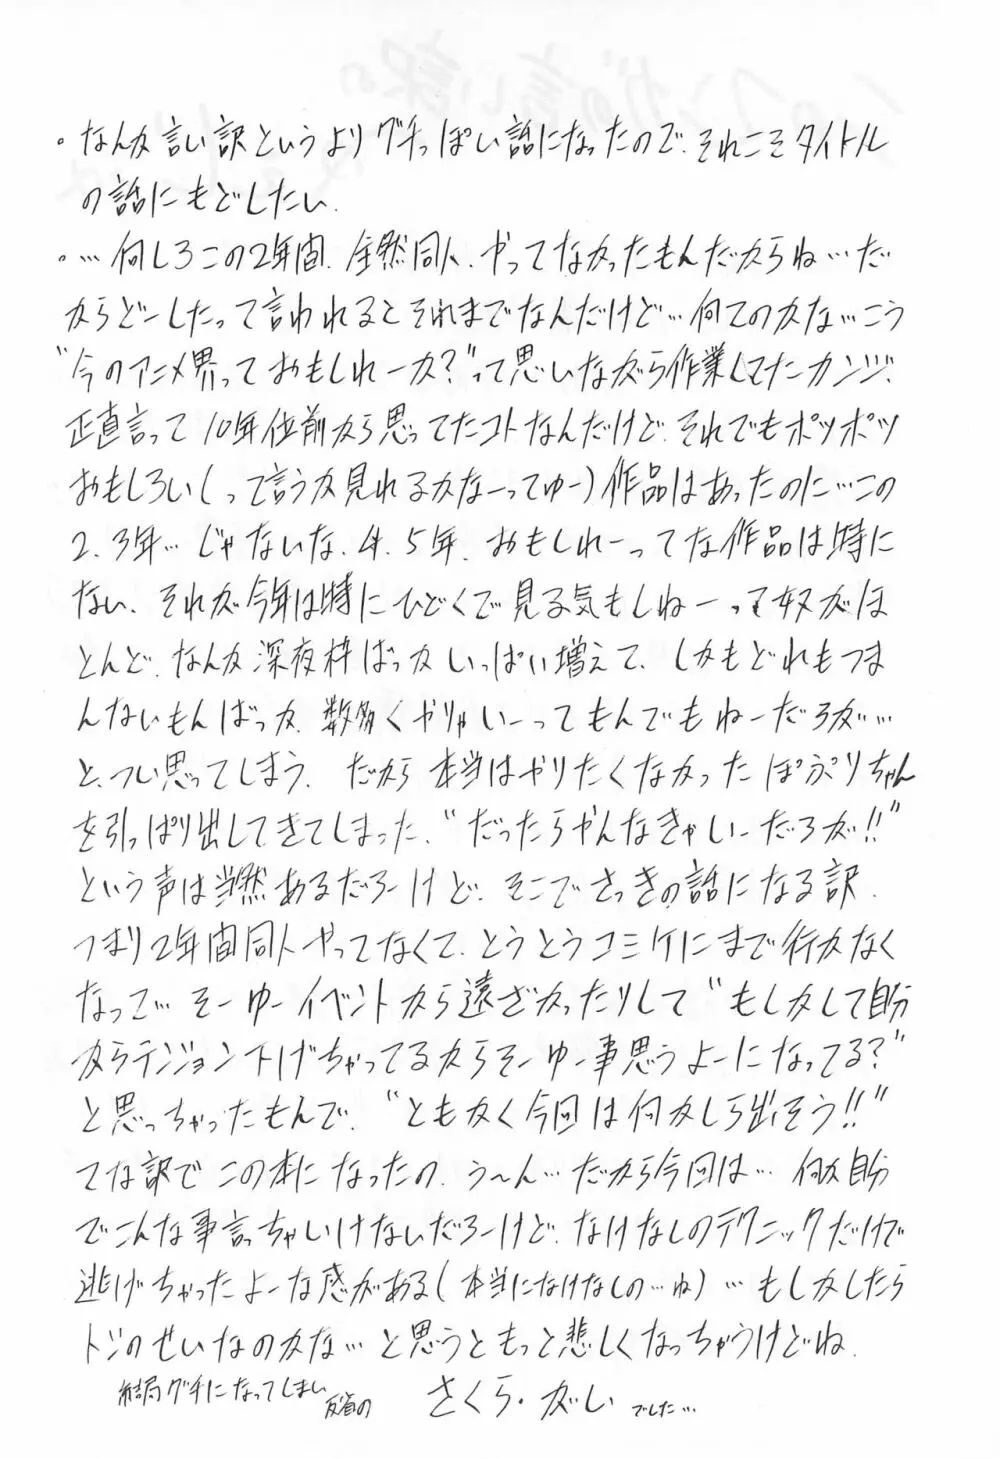 ・なんか言い訳というよりグチっぽい話になったので、それこそタイトル
の話にもどしたい.
・…何しろこの2年間、全然同人、やってなかったもんだからね…だ
からどーしたって言われるとそれまでなんだけど…何てのかな…こう
“今のアニメ界っておもしれーか?”って思いながら作業してたカンジ.
正直言って10年位前から思ってたコトなんだけど、それでもポツポツ
おもしろい(って言うか見れるかなーってゆー)作品はあったのに…この
2、3年…じゃないな、4、5年、おもしれーってな作品は特に
ない、それが今年は特にひどくて見る気もしねーって奴がほ
とんど、なんか深夜枠ばっかいっぱい増えて、しかもどれもつま
んないもんばっか、数多くやりゃいーってもんでもねーだろが…
と、つい思ってしまう. だから本当はやりたくなかったぽぷりちゃん
を引っぱり出してきてしまった、“だったらやんなきゃいーだろが!!”
という声は当然あるだろーけど、そこでさっきの話になる訳.
つまり2年間同人やってなくて、とうとうコミケにまで行かなく
なって…そーゆーイベントから遠ざかったりして“もしかして自分
からテンション下げちゃってるからそーゆー事思うよーになってる?”
と思っちゃったもんで、“ともかく今回は何かしら出そう!!”
てな訳でこの本になったの、う〜ん…だから今回は…何か自分
でこんな事言っちゃいけないだろーけど、なけなしのテクニックだけで
逃げちゃったよーな感がある(本当になけなしの…ね)…もしかしたら
トシのせいなのかな…と思うともっと悲しくなっちゃうけどね.
結局グチになってしまい
反省の さくら・がい でした…